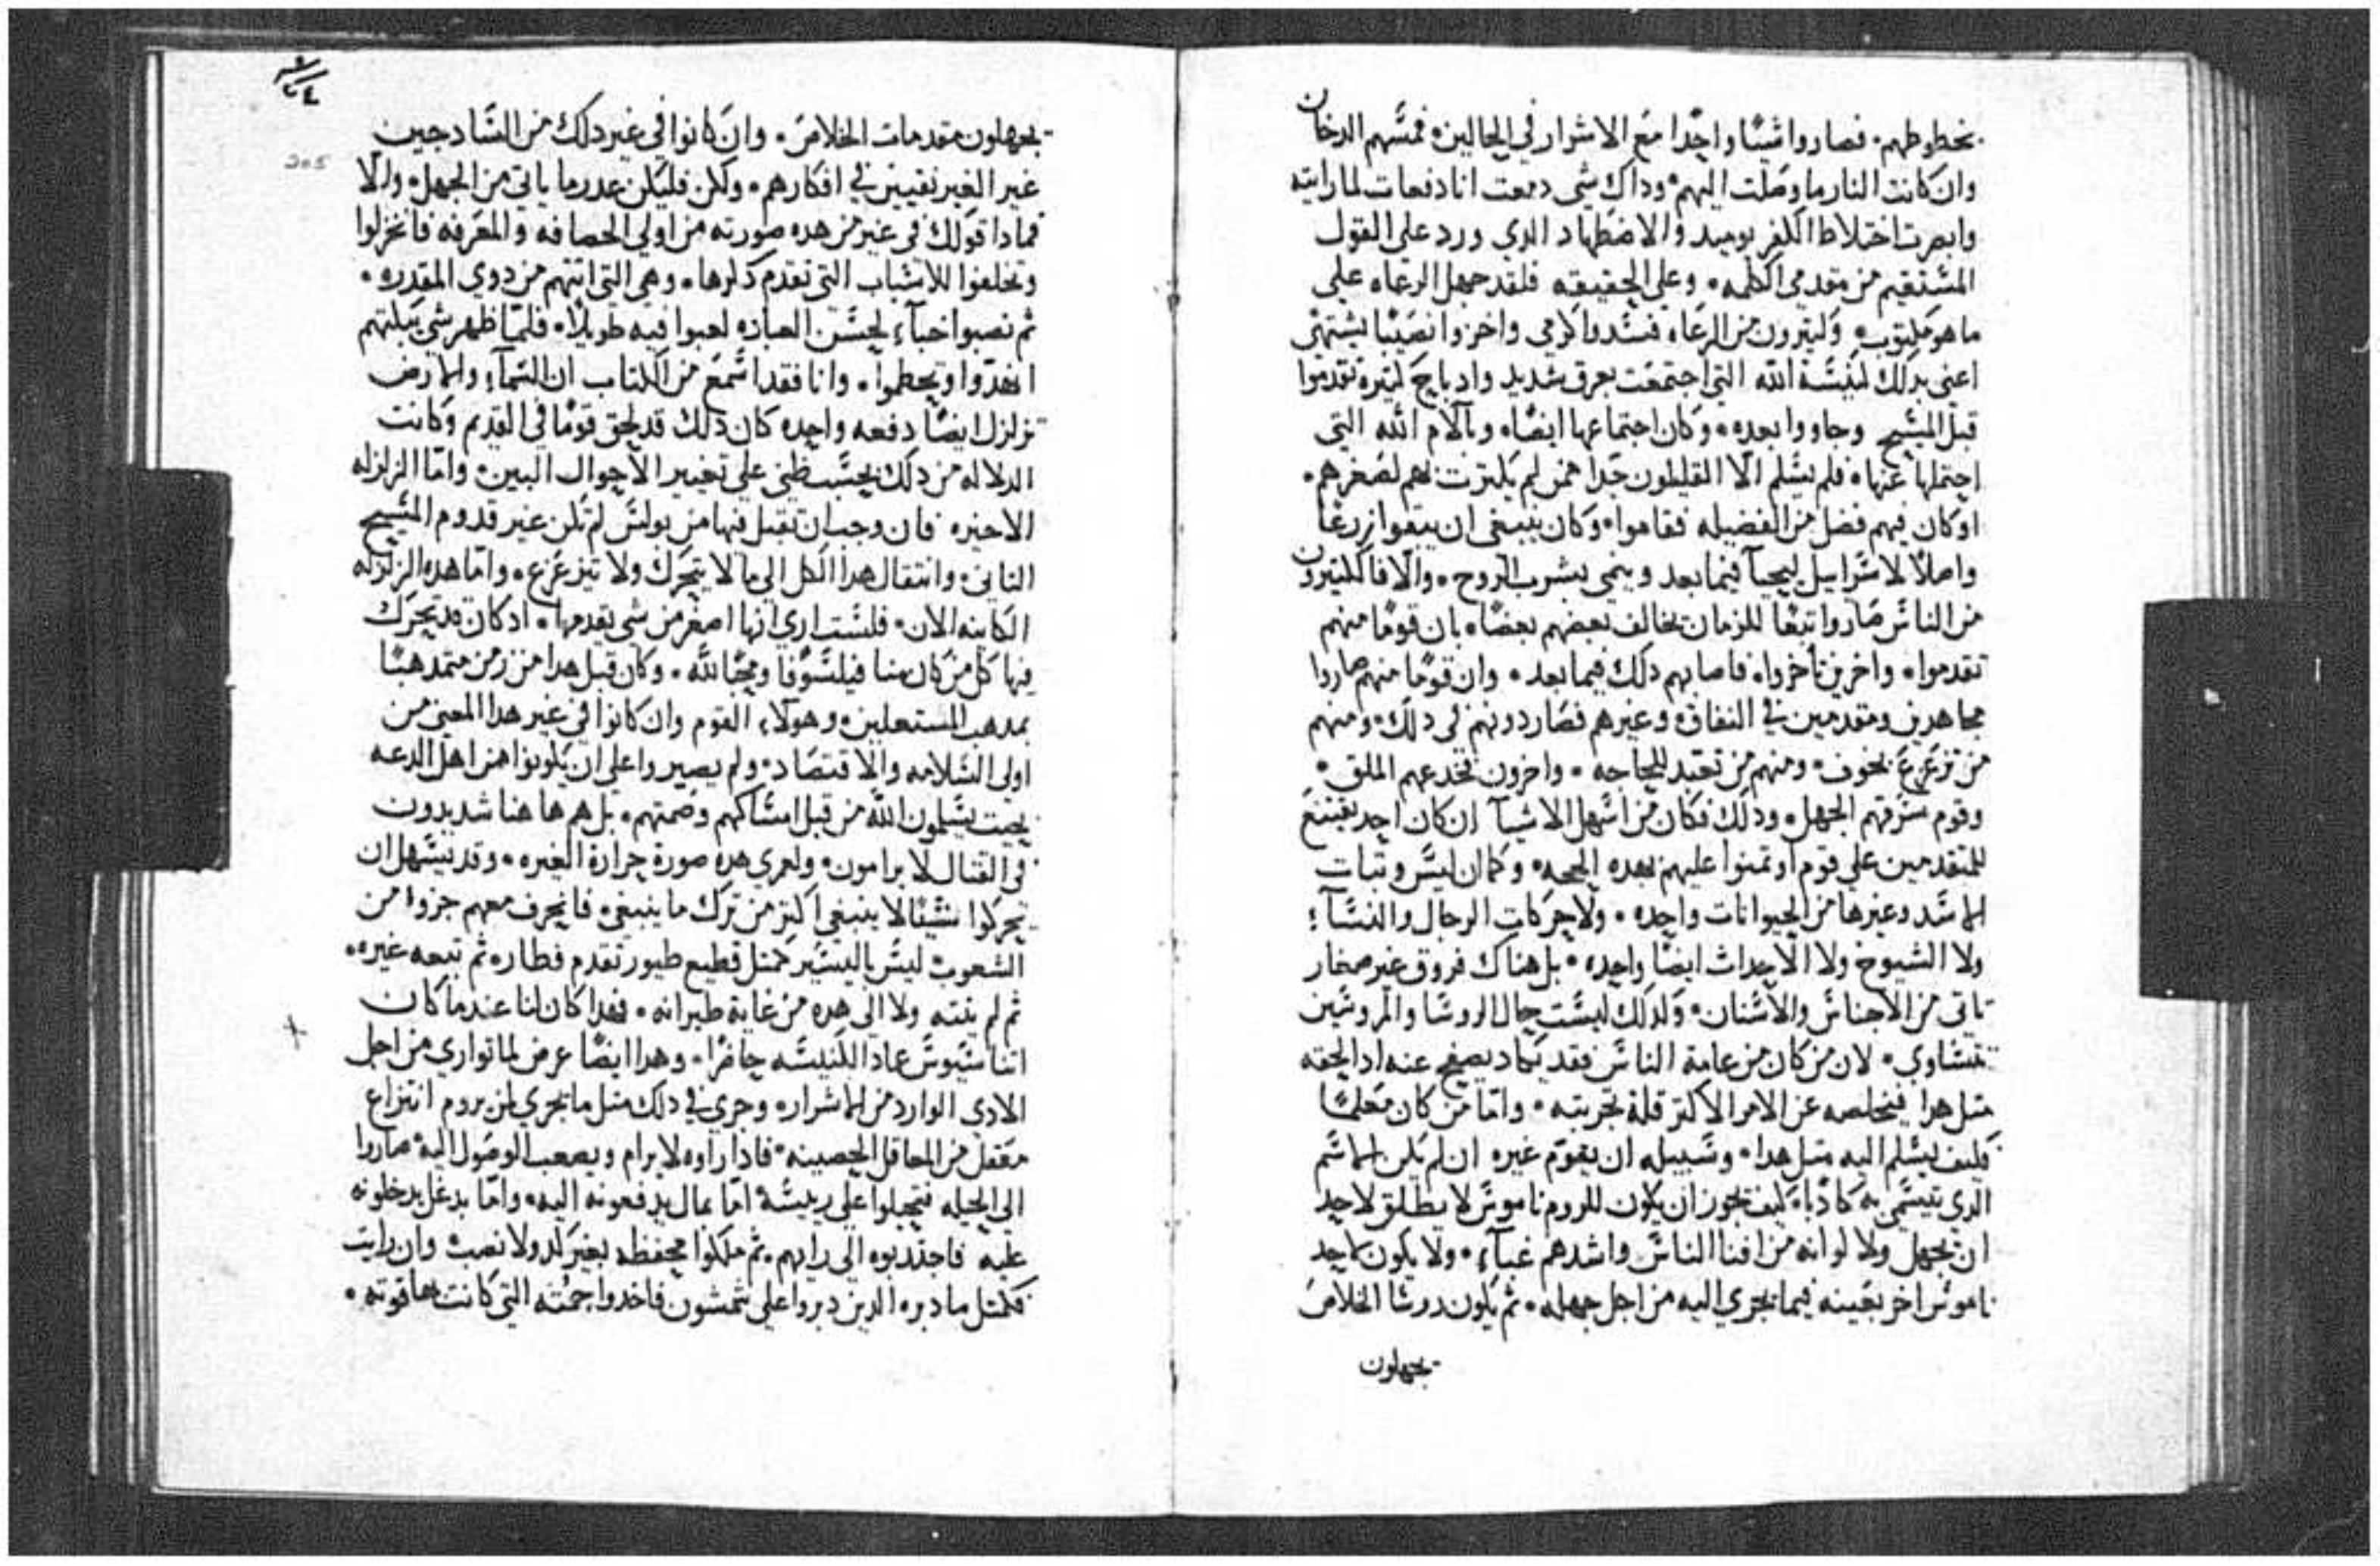 بخطوطهم. فصاروا شيًا واحدًا مع الاشرار في الحالين. فمسهم الدخان
وان كانت النار ما وصلت اليهم. وذاك شي دمعت انا دفعات لما رايته
وابصرت اختلاط الكفر يوميد والاضطهاد الدي ورد على القول
المستقيم من مقدمي الكلمه. وعلى الحقيقه فلقد جهل الرعاه على
ما هو مكتوب. وكثيرون من الرعاه فسدوا كرمي واخزوا نصيبًا يشتهى
اعني بدلك كنيسة الله التي اجتمعت بعرق شديد وادباح كثيرة تقدموا
قبل المسيح وجاووا بعده. وكان اجتماعها ايضًا. وبآلام الله التي
احتملها عنها. فلم يسلم الا القليلون جدا ممن لم يكترت لهم لصغرهم.
او كان فيهم فضل من الفضيله فقاموا. وكان ينبغي ان يبقوا زرعًا
واصلاً لاسراييل ليحيا فيما بعد وينمي بشرب الروح. والا فالكتيرون
من الناس صاروا تبعًا للزمان يخالف بعضهم بعضا. بان قومًا منهم
تقدموا. واخرين تأخروا. فاصابهم دلك فيما بعد. وان قومًا منهم صاروا
مجاهدين ومتقدمين في النفاق. وغيرهم فصار دونهم في دلك. ومنهم
من تزعزع بخوف. ومنهم من تعبد للحاجه. واخرون تخدعهم الملق.
وقوم سرقهم الجهل. ودلك فكان من اسهل الاشيا ان كان احد يقتنع
للمتقدمين على قوم اوتمنوا عليهم بهده الحجه. وكما ان ليس وتبات
الاسد وغيرها من الحيوانات واحده. ولا حركات الرجال والنسآء
ولا الشيوخ ولا الاحداث ايضًا واحده. بل هناك فروق غير صغار
تاتي من الاجناس والاسنان. وكدلك ليست حال الروسا والمروسين
تتساوى. لان من كان من عامة الناس فقد يكاد يصفح عنه اد الحقه
متل هدا فيخلصه عن الامر الاكتر قلة تجربته. واما من كان معلمًا
فكيف يسلم اليه متل هدا. وسبيله ان يقوّم غيره ان لم يكن الاسم
الدي تيسمى به كادبا. كيف يجوز ان يكون للروم ناموس لا يطلق لاحد
ان يجهل ولا لو انه من افنا الناس واشدهم غبآء. ولا يكون لاحد
ناموس اخر بعينه فيما يجري اليه من اجل جهله. ثم يكون روسا الخلاص
يجهلون
٢٤٤
305
يجهلون متقدمات الخلاص. وان كانوا في غير دلك من السادجين
غير الغير نقيين في افكارهم. ولكن فليكن عدر ما ياتي من الجهل. والا
فمادا قولك في غير من هده صورته من اولي الحصافه والمعرفه فانخزلوا
وتخلفوا للاسباب التي تقدم دكرها. وهي التي اتتهم من دوي المقدره.
ثم نصبوا خبآء لحسن العباده لعبوا فيه طويلاً. فلما ظهر شي يبكتهم
انهدّوا وتحطموا. وانا فقد اسمع من الكتاب ان السمآء والارض
تزلزل ايضًا دفعه واحده كان دلك قد لحق قومًا في القديم وكانت
الدلاله من دلك بحسب ظني على تغيير الاحوال البين. واما الزلزله
الاخيره فان وجب ان تقبل فيها من بولس لم تكن غير قدوم المسيح
التاني. وانتقال هدا الكل الى ما لا يتحرك ولا تيزعزع. واما هده الزلزله
الكاينه الان. فلست ارى انها اصغر من شي تقدمها. اد كان قد يحرك
فيها كل من كان منا فيلسوفا ومحبًا لله. وكان قبل هدا من زمن متمدهبًا
بمدهب المستعلين. وهولاء القوم وان كانوا في غير هدا المعنى من
اولى السلامه والاقتصاد. ولم يصيروا على ان يكونوا من اهل الدعه
بحيت يسلمون الله من قبل امساكهم وصمتهم. بل هم هاهنا شديدون
في القتال لا يرامون. ولعمري هده صورة حرارة الغيره. وقد تيسهل ان
يحركوا شيًا لا ينبغي اكتر من ترك ما ينبغي. فانحرف معهم جزوا من
الشعوب ليس باليسير كمتل قطيع طيور تقدم فطار. ثم تبعه غيره.
ثم لم ينته ولا الى هده من غاية طيرانه. فهدا كان لنا عند ما كان
اتناسيوس عماد الكنيسه حاضرا. وهدا ايضًا عرض لما توارى من اجل
الادى الوارد من الاشرار. وجرى في دلك متل ما يجري لمن يروم انتزاع
معقل من المعاقل الحصينه. فادا راوه لا يرام ويصعب الوصول اليه صاروا
الى الحيله فتحيلوا على رييسه اما بمال يدفعونه اليه. واما بدغل يدخلونه
عليه فاجتدبوه الى رايهم. ثم ملكوا محفظه بغير كد ولا نصب وان رايت
فكمتل ما دبره الدين دبروا على شمشون فاخدوا جمته التي كانت بها قوته.